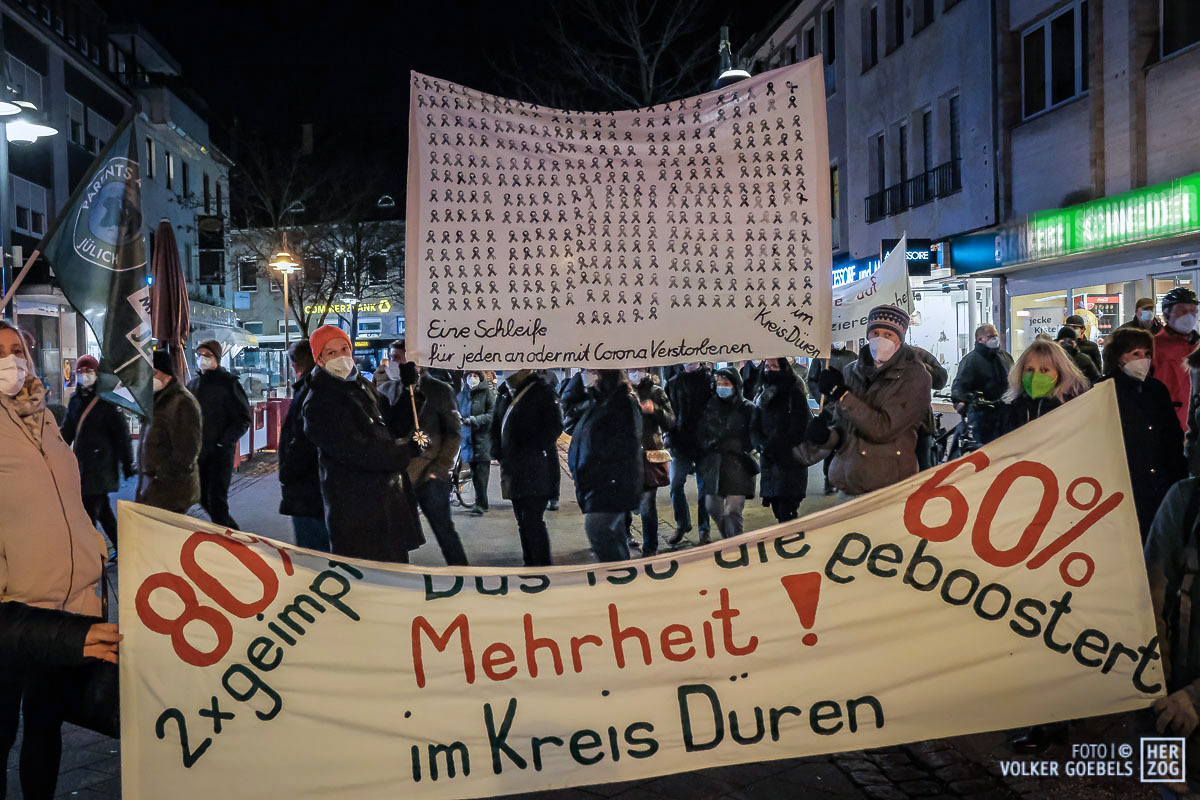 PARENTS
JÜLICH
Eine Schleife
für jeden an oder mit Corona Verstorbenen
im
Kreis Düren
COMMERZBANK
SCHNEIDER
jecke
80%
2x geimpft
Das ist die
Mehrheit!
im Kreis Düren
60%
geboostert
FOTO | ©
VOLKER GOEBELS
HER
ZOG